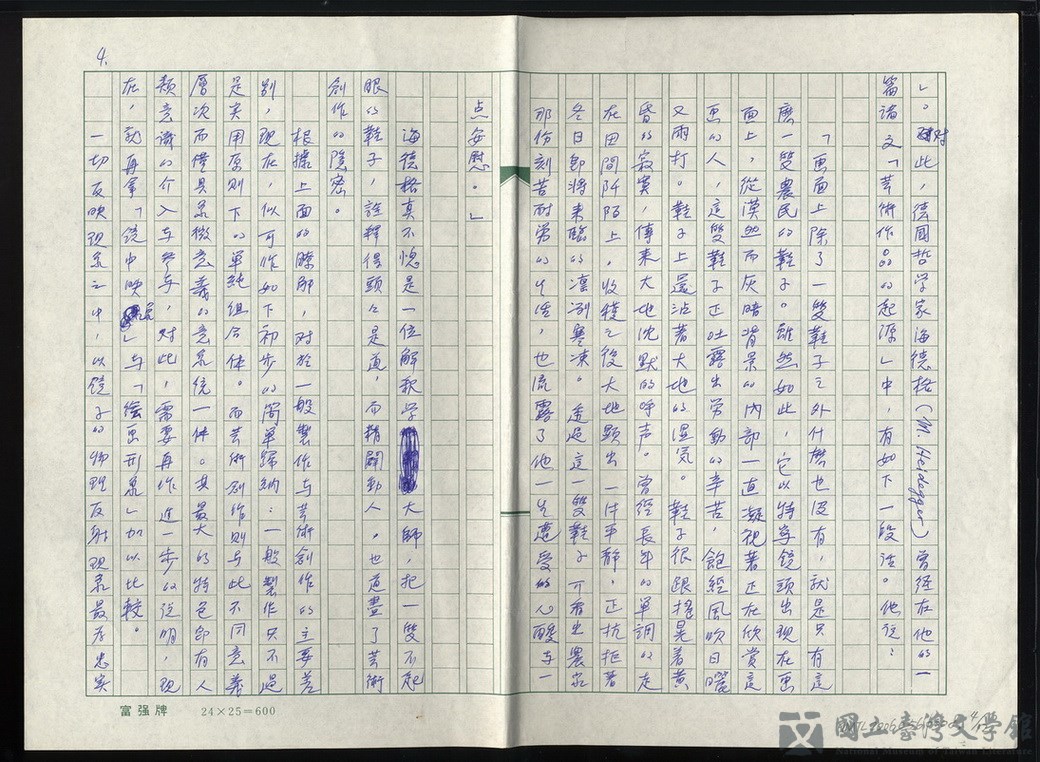 」。对此，德國哲学家海德格(M. Heidegger)曾經在他的一
篇諸文「芸術作品的起源」中，有如下一段話。他說：
「画面上除了一雙鞋子之外什麼也没有，就是只有這
麼一雙農民的鞋子。雖然如此，它以特寫鏡頭出現在画
面上，從漠然而灰暗背景的內部一直凝視著正在欣賞這
画的人，這雙鞋子正吐露出労動的辛苦，飽經風吹日曬
又雨打。鞋子上還沾著大地的濕気。鞋子很跟搖晃着黃
昏的寂寞，傳来大地沈默的呼声。曾經長年的單調的走
在田間阡陌上，收穫之後大地顯出一片平靜，正抗拒著
冬日即將来臨的凜冽寒凍。透過這一雙鞋子可看出農家
那份刻苦耐労的生活，也流露了他一生遭受的心酸与一
点安慰。」
海德格真不愧是一位解釈学大師，把一雙不起
眼的鞋子，詮釋得頭々是道，而精闢動人。也道盡了芸術
創作的隱密。
根據上面的瞭解，对於一般製作与芸術創作的主要差
別，現在，似可作如下初步的简單歸納：一般製作只不過
是实用原則下的單純組合体。而芸術創作則与此不同意義
層次而僅具象徵意義的意象統一体。其最大的特色即有人
類意識的介入与参与，对此，需要再作進一步的說明，現
在，就再拿「鏡中映像」与「繪画形象」加以比較。
一切反映現象之中，以鏡子的物理反射現象最為忠实
4.
富强牌 24×25=600
國立臺灣文學館
National Museum of Taiwan Literature